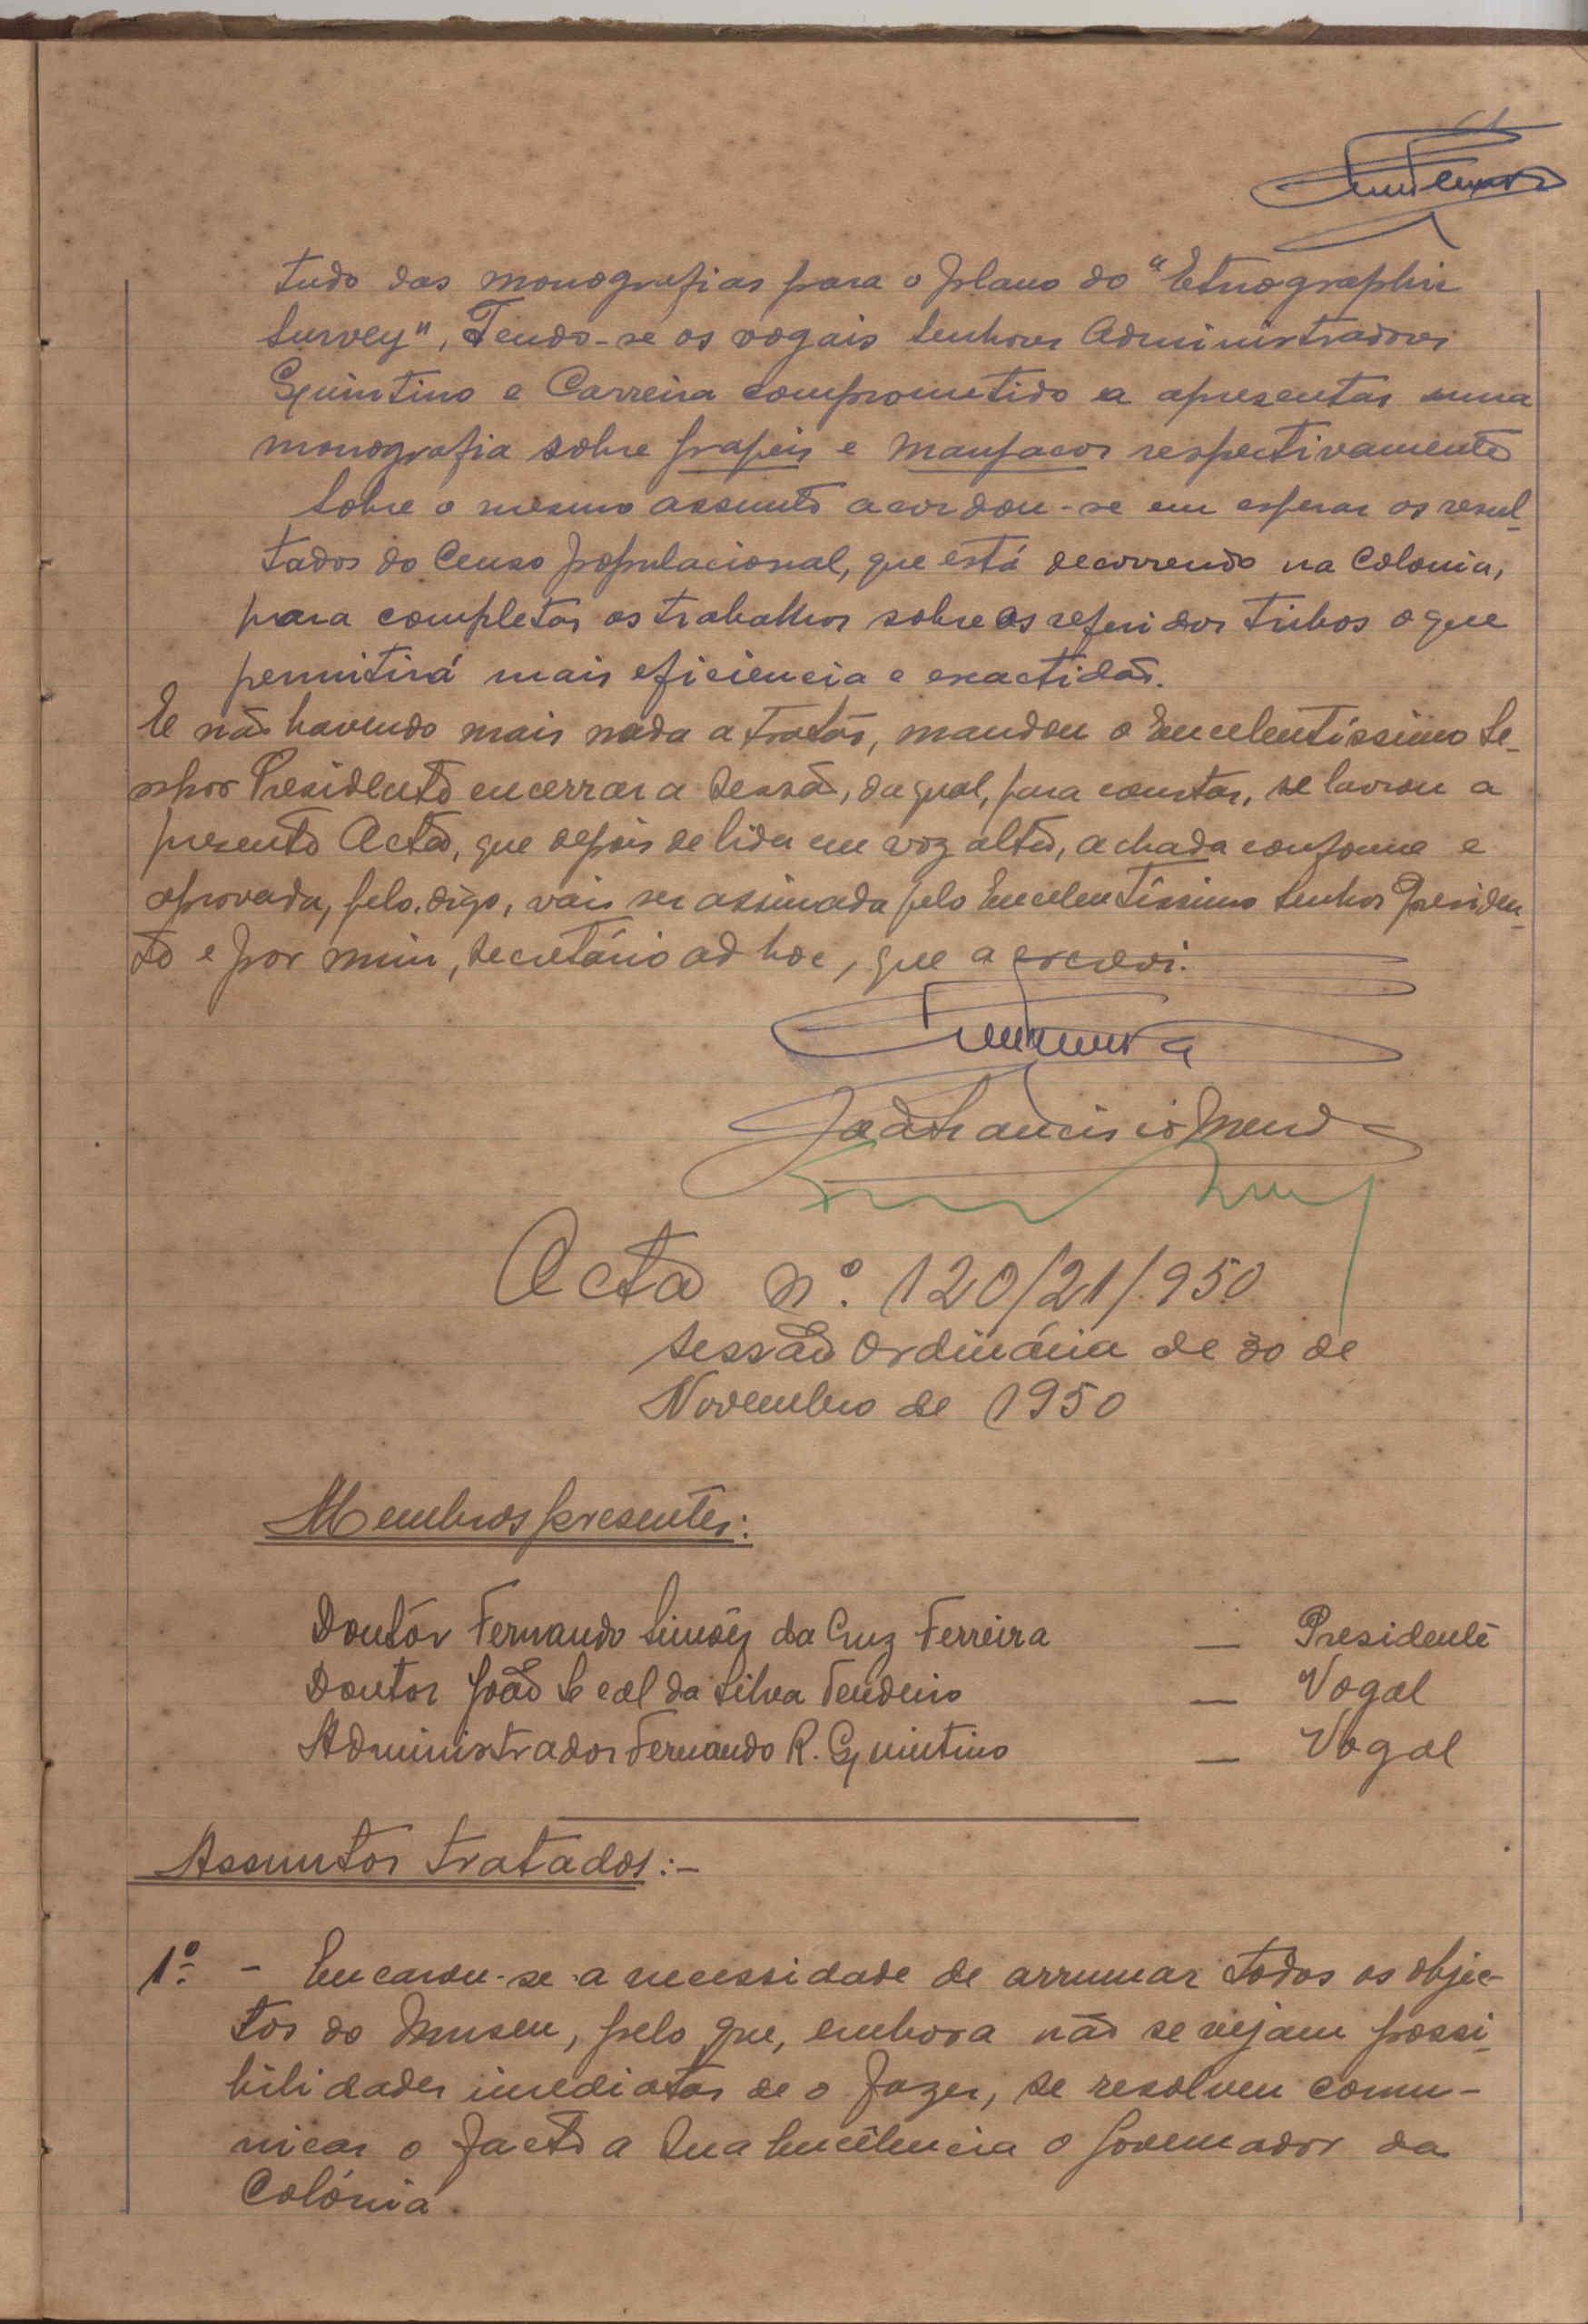 tudo das monografias para o plano do "Etnographic
Survey", Tendo-se os vogais Senhores Administradores
Quintino e Carreira comprometido a apresentar uma
monografia sobre papeis e Manjacos respectivamente
Sobre o mesmo assunto acordou-se em esperar os resul-
tados do Censo populacional, que está decorrendo na Colonia,
para completar os trabalhos sobre os referidos tribos o que
permitirá mais eficiencia e exactidão.
E não havendo mais nada a tratar, mandou o Excelentíssimo Se-
nhor Presidente encerrar a Sessão, da qual, para constar, se lavrou a
presente Acta, que depois de lida em voz alta, achada conforme e
aprovada, pelo, digo, vais ser assinada pelo Excelentíssimo Senhor Presiden-
te e por mim, Secretário ad hoc, que a escrevi.
João Francisco
Acta nº. 120/21/950
Sessão Ordinária de 30 de
Novembro de 1950
Membros presentes:
Doutór Fernando Simões da Cruz Ferreira — Presidente
Doutor João Leal da Silva Tendeiro — Vogal
Administrador Fernando R. Quintino — Vogal
Assuntos tratados:-
1º - Encarou-se a necessidade de arrumar todos os objec-
tos do Museu, pelo que, embora não se vejam possi-
bilidades imediatas de o fazer, se resolveu comu-
nicar o facto a Sua Excelência o Governador da
Colónia.